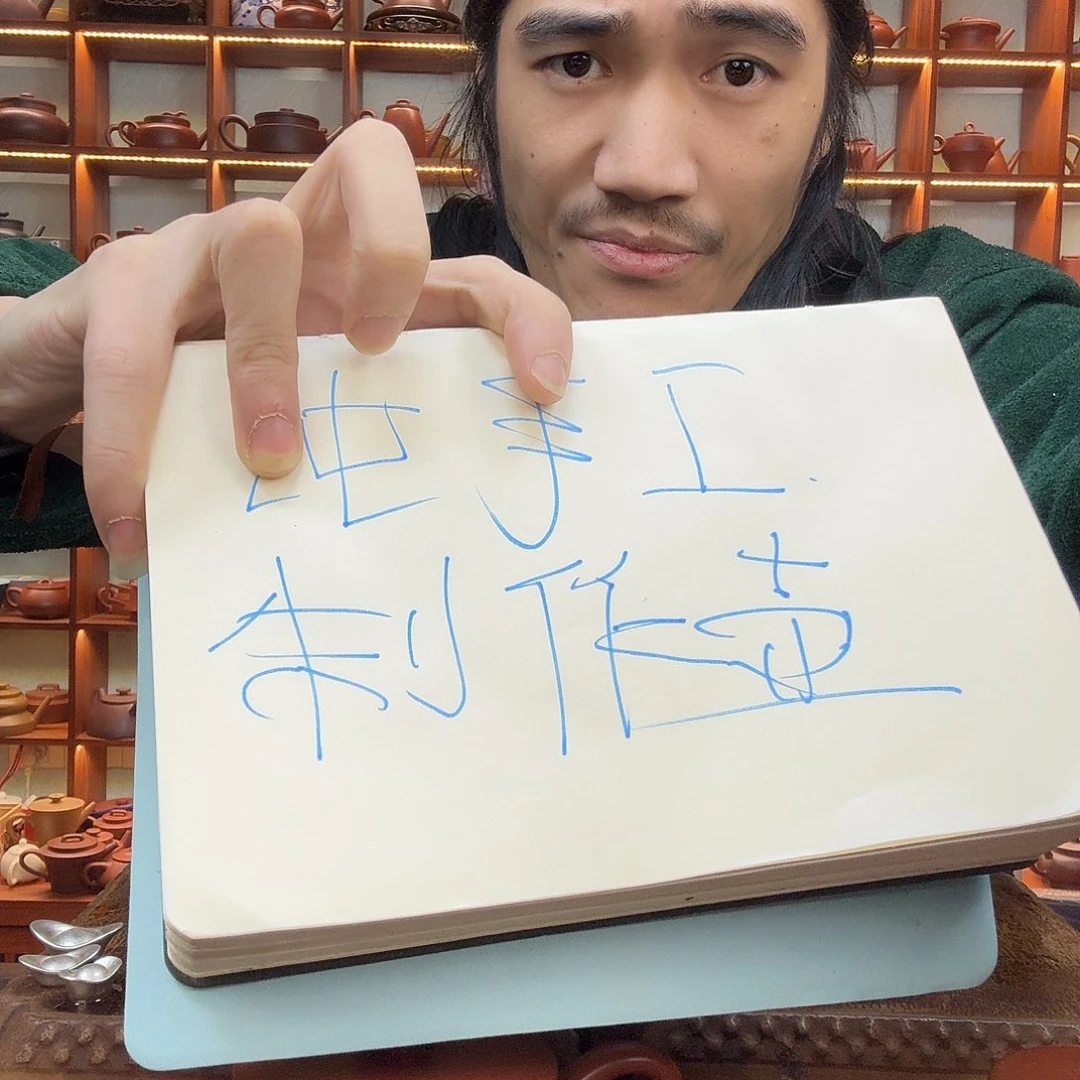 纯手工
制作壶